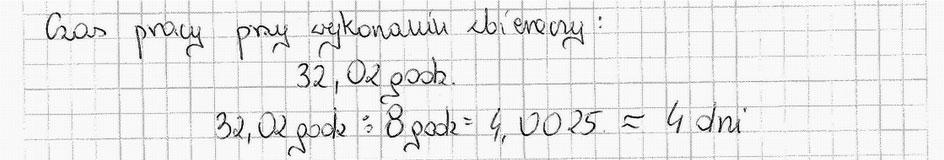 Czas pracy przy wykonaniu zbieraczy:
32,02 godz.
32,02 godz : 8 godz = 4,0025 ≈ 4 dni